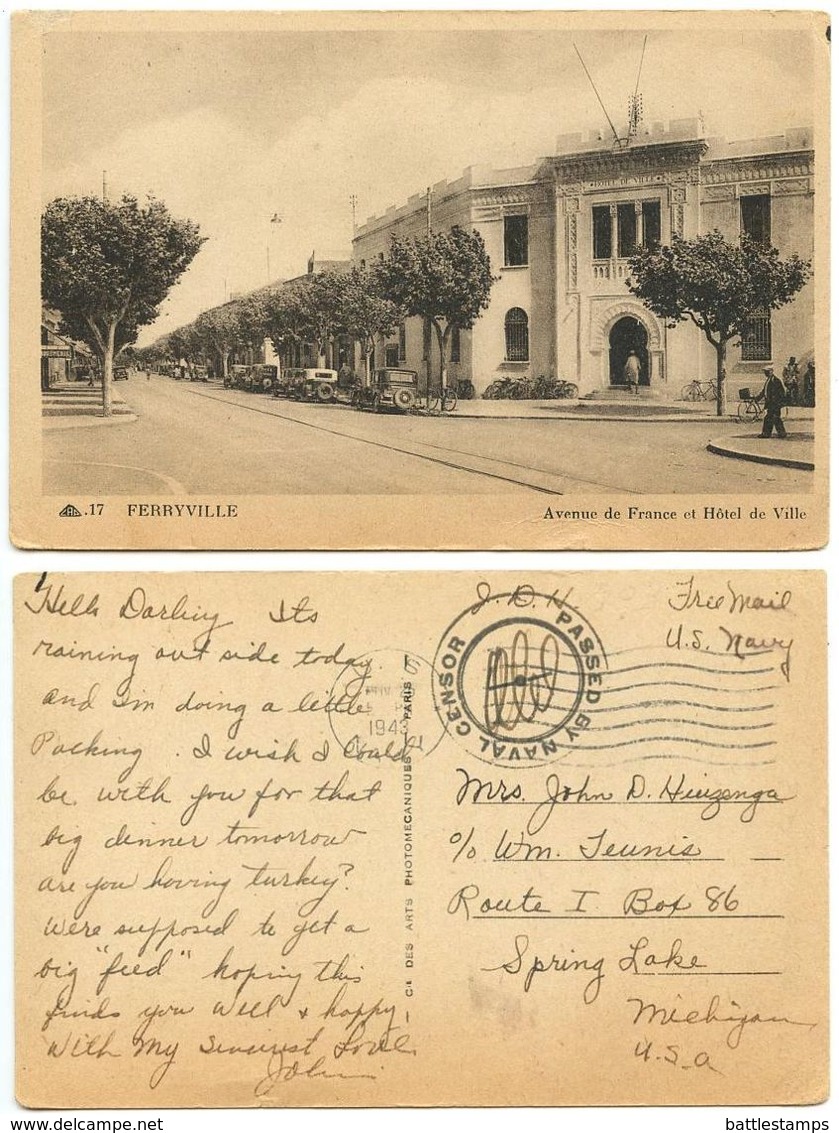 HOTEL DE VILLE
CAP .17 FERRYVILLE
Avenue de France et Hôtel de Ville
Hello Darling Its
raining out side today.
and Im doing a little
Packing. I wish I could
be with you for that
big dinner tomorrow
are you having turkey?
Were supposed to get a
big "feed" hoping this
finds you well & happy,
With My Sincirest Love.
John
Cie DES ARTS PHOTOMECANIQUES PARIS
1943
PASSED BY NAVAL CENSOR
J. D. H.
Free Mail
U.S. Navy
Mrs. John D. Huizenga
c/o Wm. Teunis
Route I Box 86
Spring Lake
Michigan
U.S.a
battlestamps